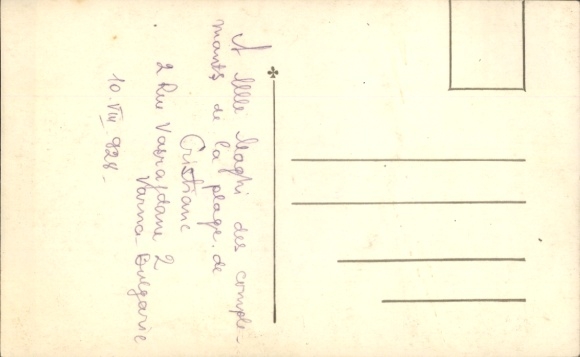 A Mlle Maghi des comple-
ments de la plage. de
Cristiane
2 Rue Vasrajdane 2
Varna - Bulgarie
10. VIII 928 -